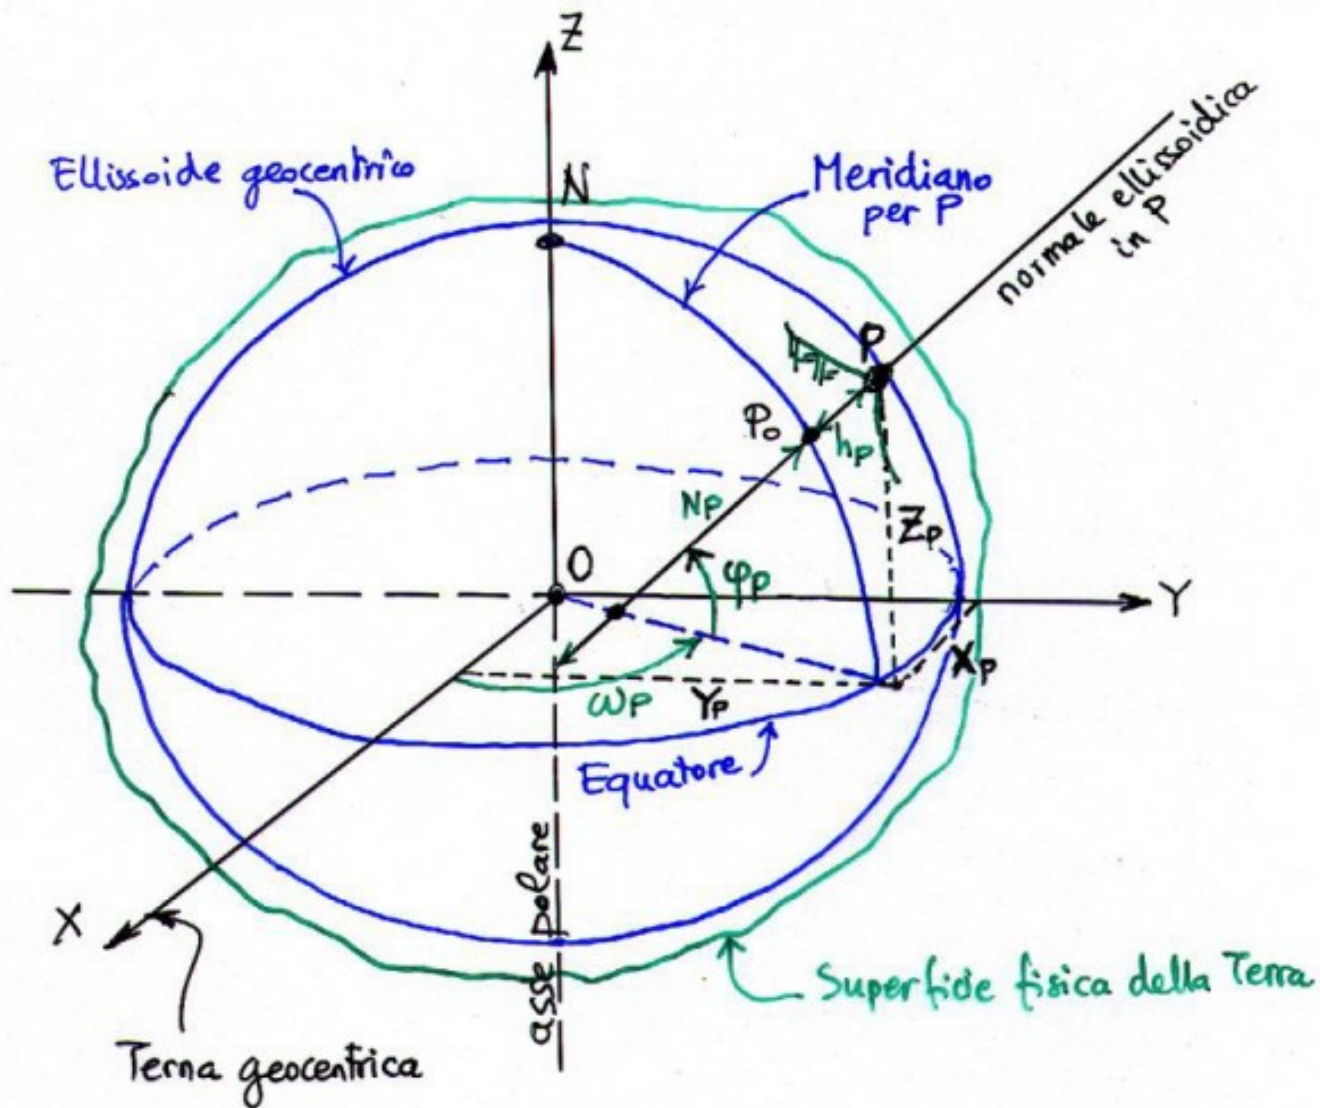 Z
Ellissoide geocentrico
N
Meridiano
per P
normale ellissoidica
in P
P
P₀
hp
Np
Zp
O
φp
Y
Xp
ωp
Yp
Equatore
asse polare
X
Superficie fisica della Terra
Terna geocentrica